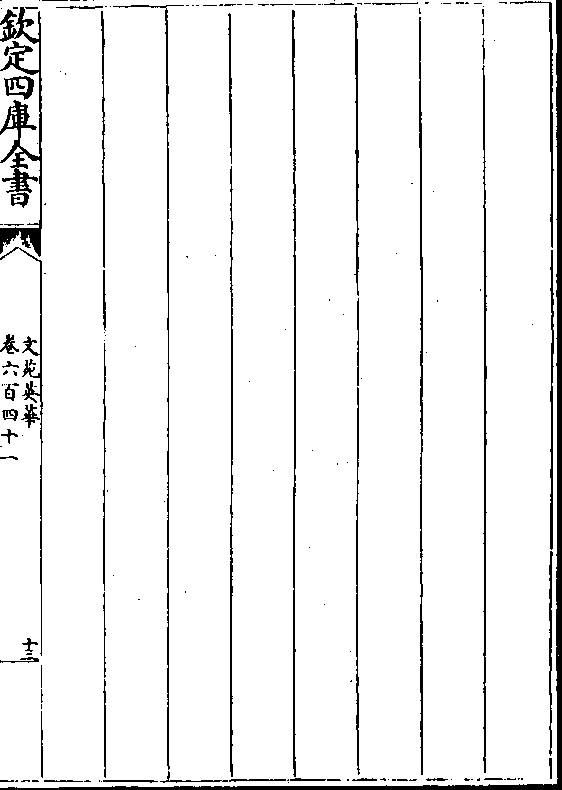 欽定四庫全書
文苑英華
卷六百四十一
十三